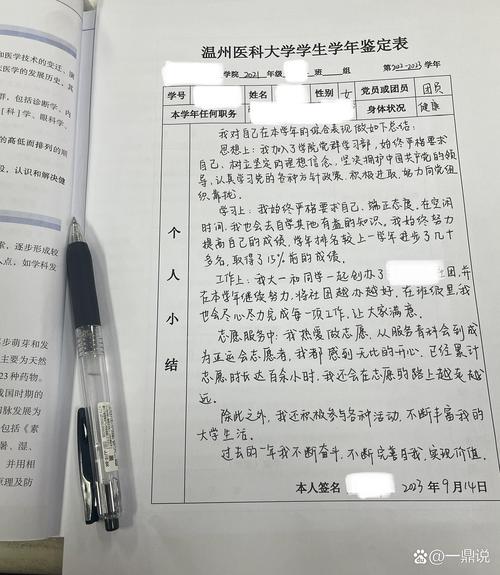 和医学技术的变迁、演
医学的发展历史,其
群,包括诊断学、内
[科]学、眼科学、
的高低面排列的顺
段,认识和解决健
索,逐步形成较
人点,如学科发
步萌芽和发
主要为天然
23种药物。
我国时期的
和脉发展为
包括《素
暑、湿、
并用相
原理及防
温州医科大学学生学年鉴定表
学院 2021 年级 班 组 第2022-2023学年
学号 姓名 性别 女 党员或团员 团员
本学年任何职务 身体状况 健康
个人小结
我对自己在本学年的综合表现做如下总结:
思想上:我加入了学院党群学习部,始终严格要求
自己,树立坚定的理想信念,坚决拥护中国共产党的领
导,认真学习党的各种方针政策,积极进取,努力向党组
织靠拢。
学习上:我始终严格要求自己,端正态度,在空闲
时间,我也会去自学其他有益的知识。我始终努力
提高自己的成绩,学年排名较上一学年进步了几十
多名,取得了15%前的成绩。
工作上:我大一和同学一起创办了 社团,并
在本学年继续努力,将社团越办越好,在班级里,我
也会尽心尽力完成每一项工作,让大家满意。
志愿服务中:我热爱做志愿,从服务育科会到成
为亚运会志愿者,我都感到无比的开心,已经累计
志愿时长达百余小时,我还会在志愿的路上越走越
远。
除此之外,我还积极参与各种活动,不断丰富我的
大学生活。
过去的一年我不断奋斗,不断完善自我,实现价值。
本人签名 2023年9月14日
百家号@一鼎说